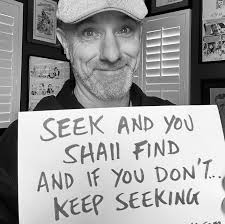 SEEK AND YOU
SHAll FIND
AND IF YOU DON'T...
KEEP SEEKING